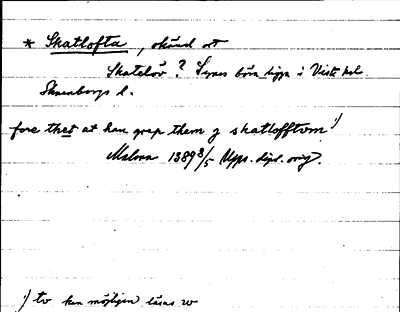 * Skatlofta, okänd ort
Skatelöv? Synes böra ligga i Vista hd.
Skaraborgs l.
fore thet at han grep them j skatlofftom 1)
Malena 1389 3/5 Upps. dipl. orig.
1) to kan möjligen läsas w